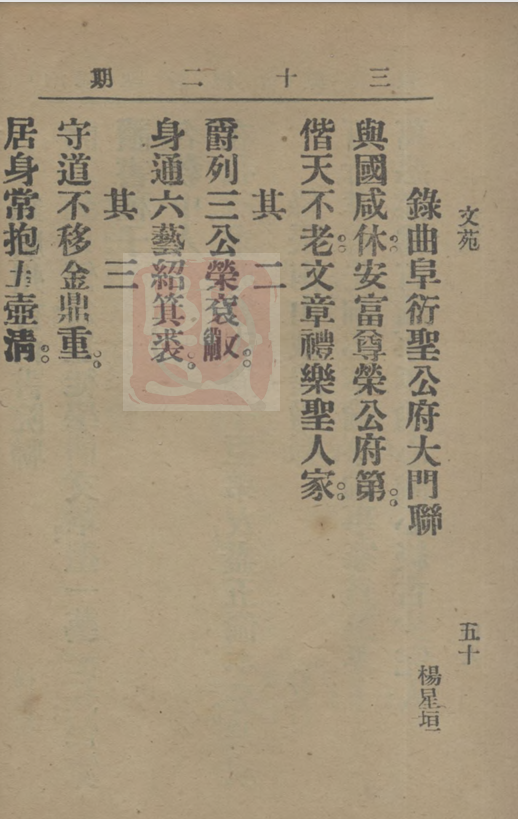 三十二期
文苑
五十
錄曲阜衍聖公府大門聯
楊星垣
與國咸休安富尊榮公府第。
偕天不老文章禮樂聖人家。
其二
爵列三公榮袞黻。
身通六藝紹箕裘。
其三
守道不移金鼎重。
居身常抱玉壺清。